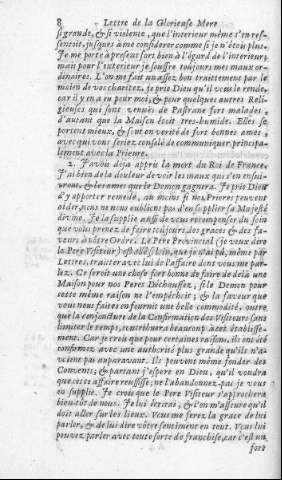 8 Lettre de la Glorieuse Mere
si grande, & si violente, que l'interieur même s'en res-
sentoit, jusques à me considerer comme si je n'étois plus.
Je me porte à present fort bien à l'égard de l'interieur;
mais pour l'exterieur je souffre toûjours mes maux or-
dinaires. L'on me fait un assez bon traittement par le
moien de vos charitez, je prie Dieu qu'il vous le rende,
car il y en a eu pour moi, & pour quelques autres Reli-
gieuses qui sont venuës de Pastrane fort malades,
d'autant que la Maison étoit tres-humide. Elles se
portent mieux, & sont en verité de fort bonnes ames,
avec qui vous seriez consolé de communiquer, principa-
lement avec la Prieure.
2. J'avois déja appris la mort du Roi de France,
J'ai bien de la douleur de voir les maux qui s'en ensui-
vront, & les ames que le Demon gagnera. Je prie Dieu
d'y apporter remede, au moins si nos Prieres peuvent
aider, nous ne nous oublions pas d'en supplier sa Majesté
divine. Je la supplie aussi de vous recompenser du soin
que vous prenez de faire toûjours des graces & des fa-
veurs à nôtre Ordre. Le Pere Provincial (je veux dire
le Pere Visiteur) est allé si loin, que je n'ai pû, même par
Lettres, traiter avec lui de l'affaire dont vous me par-
lez. Ce seroit une chose fort bonne de faire de delà une
Maison pour nos Peres Déchaussez, si le Demon pour
cette même raison ne l'empêchoit; & la faveur que
vous nous faites en seroit une belle commodité, outre
que la conjoncture de la Confirmation des Visiteurs sans
limiter le temps, contribuera beaucoup à cet établisse-
ment. Car je crois que pour certaines raisons, ils ont été
confirmez avec une authorité plus grande qu'ils n'a-
voient pas auparavant. Ils peuvent même fonder des
Convents; & partant j'espere en Dieu, qu'il voudra
que cette affaire reussisse; ne l'abandonnez pas je vous
en supplie. Je crois que le Pere Visiteur s'approchera
bien-tôt de nous. Je lui écrirai, & l'on m'assure qu'il
doit aller sur les lieux. Vous me serez la grace de lui
parler, & de lui dire vôtre sentiment en tout. Vous lui
pouvez parler avec toute sorte de franchise, car c'est un
fort